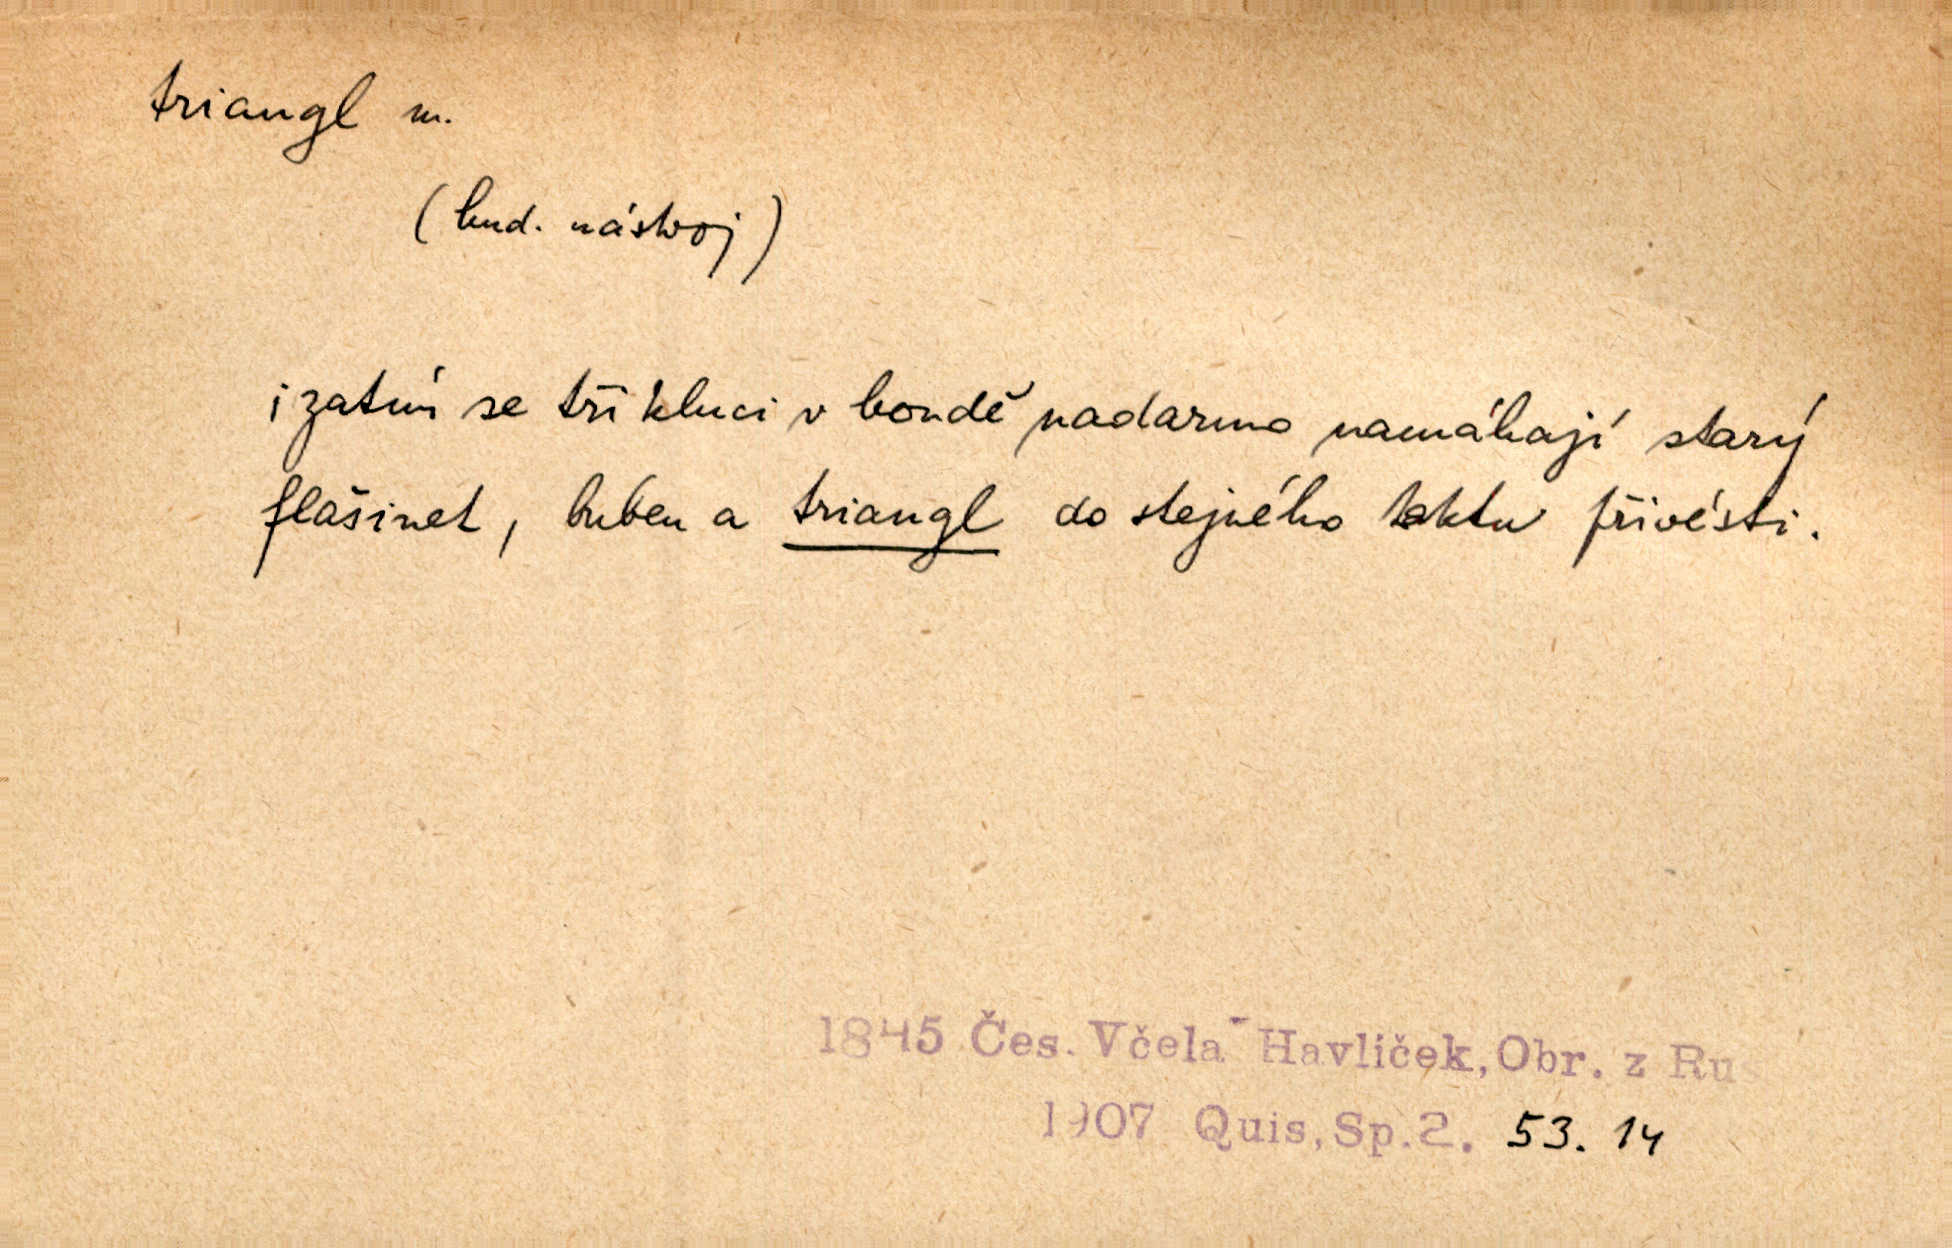 triangl m.
(hud. nástroj)
i zatím se tři kluci v boudě nadarmo namáhají starý
flašinet, buben a triangl do stejného taktu přivésti.
1845 Čes. Včela Havlíček, Obr. z Rus
1907 Quis, Sp. 2. 53. 14